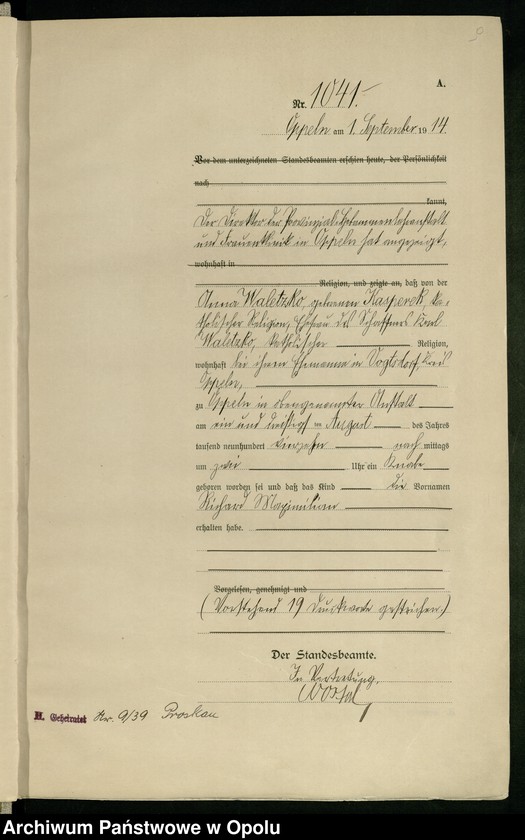 A.
Nr. 1041.
Oppeln am 1. September 1914.
Vor dem unterzeichneten Standesbeamten erschien heute, der Persönlichkeit
nach
kannt,
Der Direktor der Provinzial-Hebammenlehranstalt
und Frauenklinik in Oppeln hat angezeigt,
wohnhaft in
Religion, und zeigte an, daß von der
Anna Waletzko, geborenen Kasperek, ka-
tholischer Religion, Ehefrau des Schaffners Karl
Waletzko, katholischer Religion,
wohnhaft bei ihrem Ehemanne in Vogtsdorf, Kreis
Oppeln,
zu Oppeln in obengenannter Anstalt
am ein und dreißigsten August des Jahres
tausend neunhundert vierzehn nach mittags
um zwei Uhr ein Knabe
geboren worden sei und daß das Kind die Vornamen
Richard Maximilian
erhalten habe.
Vorgelesen, genehmigt und
(Vorstehend 19 Druckworte gestrichen.)
Der Standesbeamte.
In Vertretung.
H. Geheiratet Nr. 9/39 Proskau
Archiwum Państwowe w Opolu